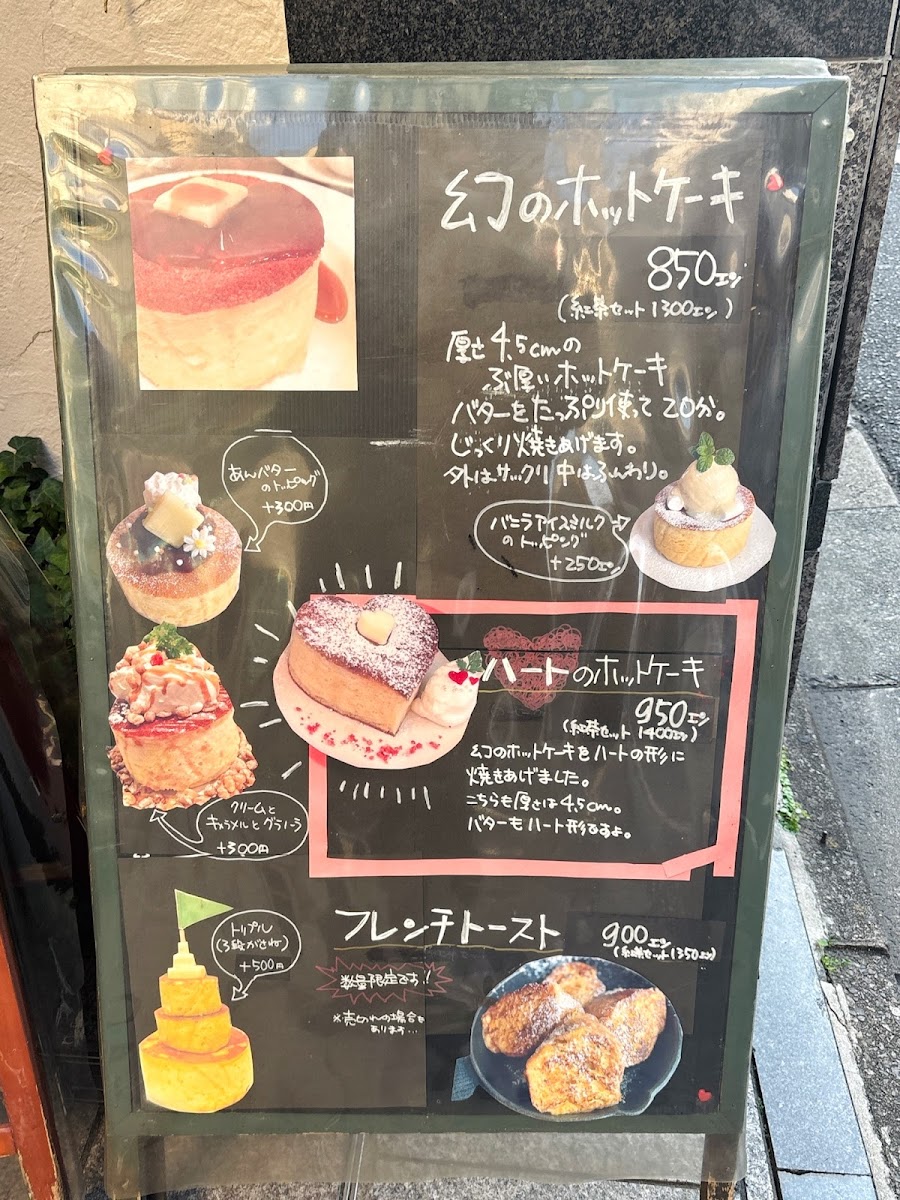 幻のホットケーキ
850エン
(紅茶セット1300エン)
厚さ4.5cmの
ぶ厚いホットケーキ
バターをたっぷり使って20分。
じっくり焼きあげます。
外はサックリ中はふんわり。
あんバター
のトッピング
+300円
バニラアイスミルク
のトッピング
+250エン
ハートのホットケーキ
950エン
(紅茶セット 1400エン)
幻のホットケーキをハートの形に
焼きあげました。
こちらも厚さは4.5cm。
バターもハート形ですよ。
クリームと
キャラメルとグラノーラ
+300円
フレンチトースト
900エン
(紅茶セット1350エン)
数量限定です!!
※売切れの場合も
あります…
トリプル
(3段がさね)
+500円